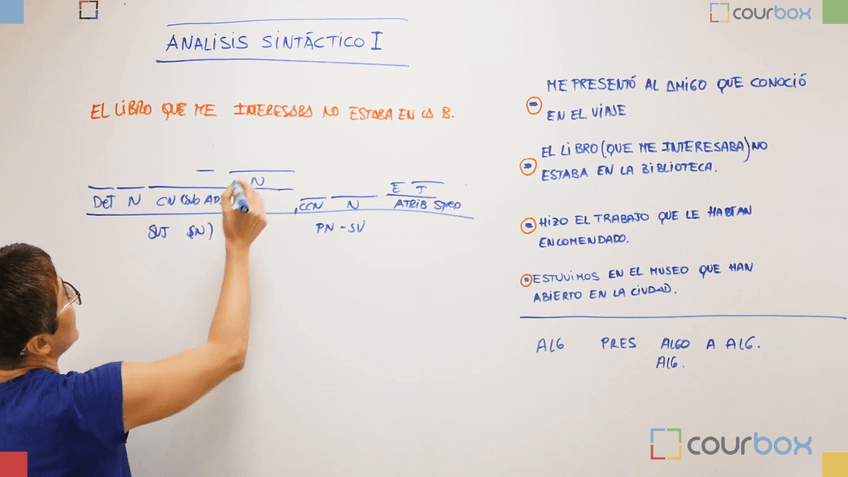 courbox
ANALISIS SINTÁCTICO I
EL LIBRO QUE ME INTERESABA NO ESTABA EN LA B.
N
DET N CN (SUB AD
SUJ (SN)
CCN N
PN - SV
E T
ATRIB SPREP
ME PRESENTÓ AL AMIGO QUE CONOCIÓ
EN EL VIAJE
EL LIBRO (QUE ME INTERESABA) NO
ESTABA EN LA BIBLIOTECA.
HIZO EL TRABAJO QUE LE HABÍAN
ENCOMENDADO.
ESTUVIMOS EN EL MUSEO QUE HAN
ABIERTO EN LA CIUDAD.
ALG PRES ALGO A ALG.
ALG.
courbox